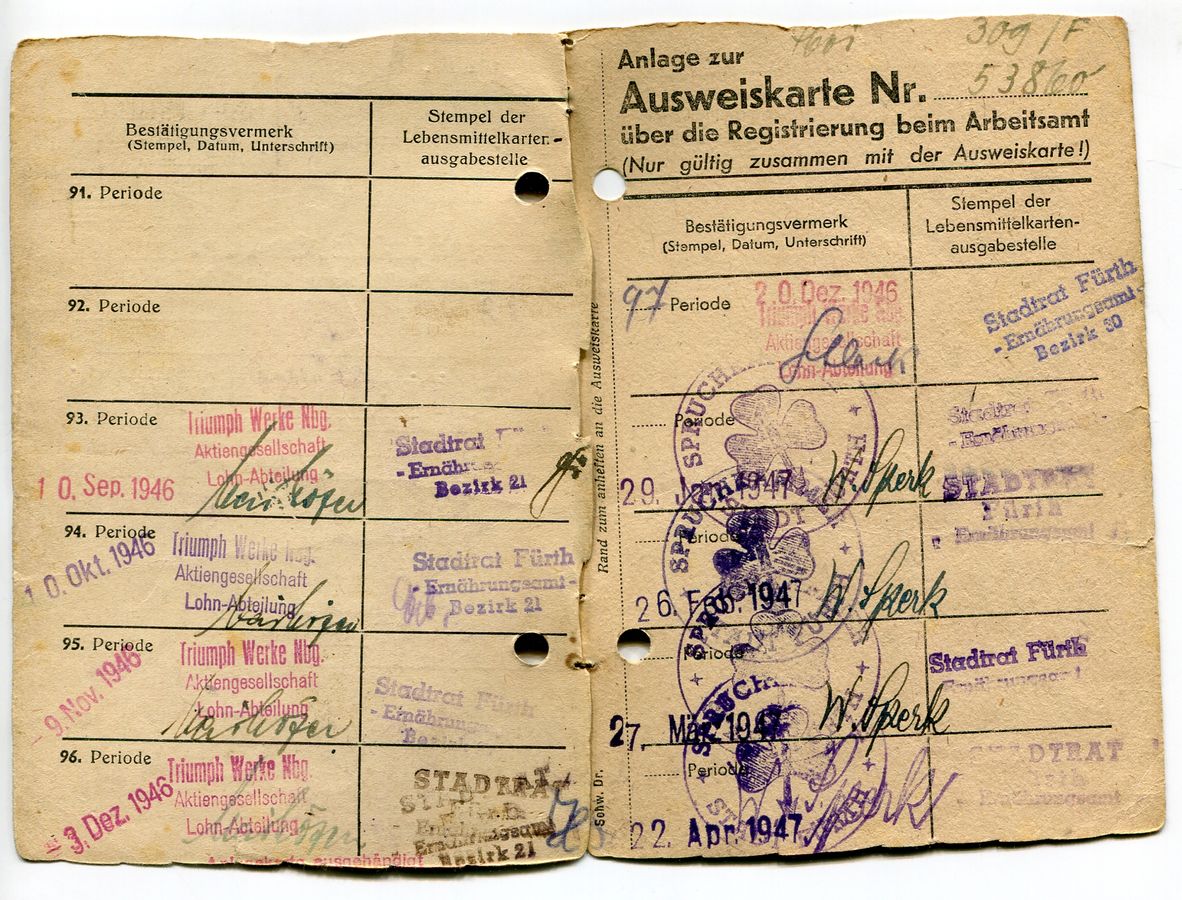 Bestätigungsvermerk
(Stempel, Datum, Unterschrift)
Stempel der
Lebensmittelkarten-
ausgabestelle
91. Periode
92. Periode
93. Periode
Triumph Werke Nbg.
Aktiengesellschaft
Lohn-Abteilung
10. Sep. 1946
Stadtrat
- Ernähru
Bezirk 21
94. Periode
10. Okt. 1946
Triumph Werke Nbg.
Aktiengesellschaft
Lohn-Abteilung
Stadtrat Fürth
- Ernährungsamt -
Bezirk 21
95. Periode
- 9. Nov. 1946
Triumph Werke Nbg.
Aktiengesellschaft
Lohn-Abteilung
Stadtrat Fürth
- Ernährungs
Bezirk
96. Periode
- 3. Dez. 1946
Triumph Werke Nbg.
Aktiengesellschaft
Lohn-Abteilung
ausgehändigt
STADTRAT
Ernährungsamt
Bezirk 21
Rand zum anheften an die Ausweiskarte
Schw. Dr.
309/F
Anlage zur
Ausweiskarte Nr. 53860
über die Registrierung beim Arbeitsamt
(Nur gültig zusammen mit der Ausweiskarte!)
Bestätigungsvermerk
(Stempel, Datum, Unterschrift)
Stempel der
Lebensmittelkarten-
ausgabestelle
97 Periode
20. Dez. 1946
Triumph Werke Nbg.
Aktiengesellschaft
Lohn-Abteilung
Stadtrat Fürth
- Ernährungsamt -
Bezirk 80
Periode
29. Jan. 1947
W. Sperk
Stadtrat Fürth
- Ernährungsamt
STADTRAT
Fürth
Ernährungsamt
Periode
26. Feb. 1947
W. Sperk
Periode
27. Mär. 1947
W. Sperk
Stadtrat Fürth
Ernährungsamt
Periode
22. Apr. 1947
W. Sperk
STADTRAT
Fürth
- Ernährungsamt